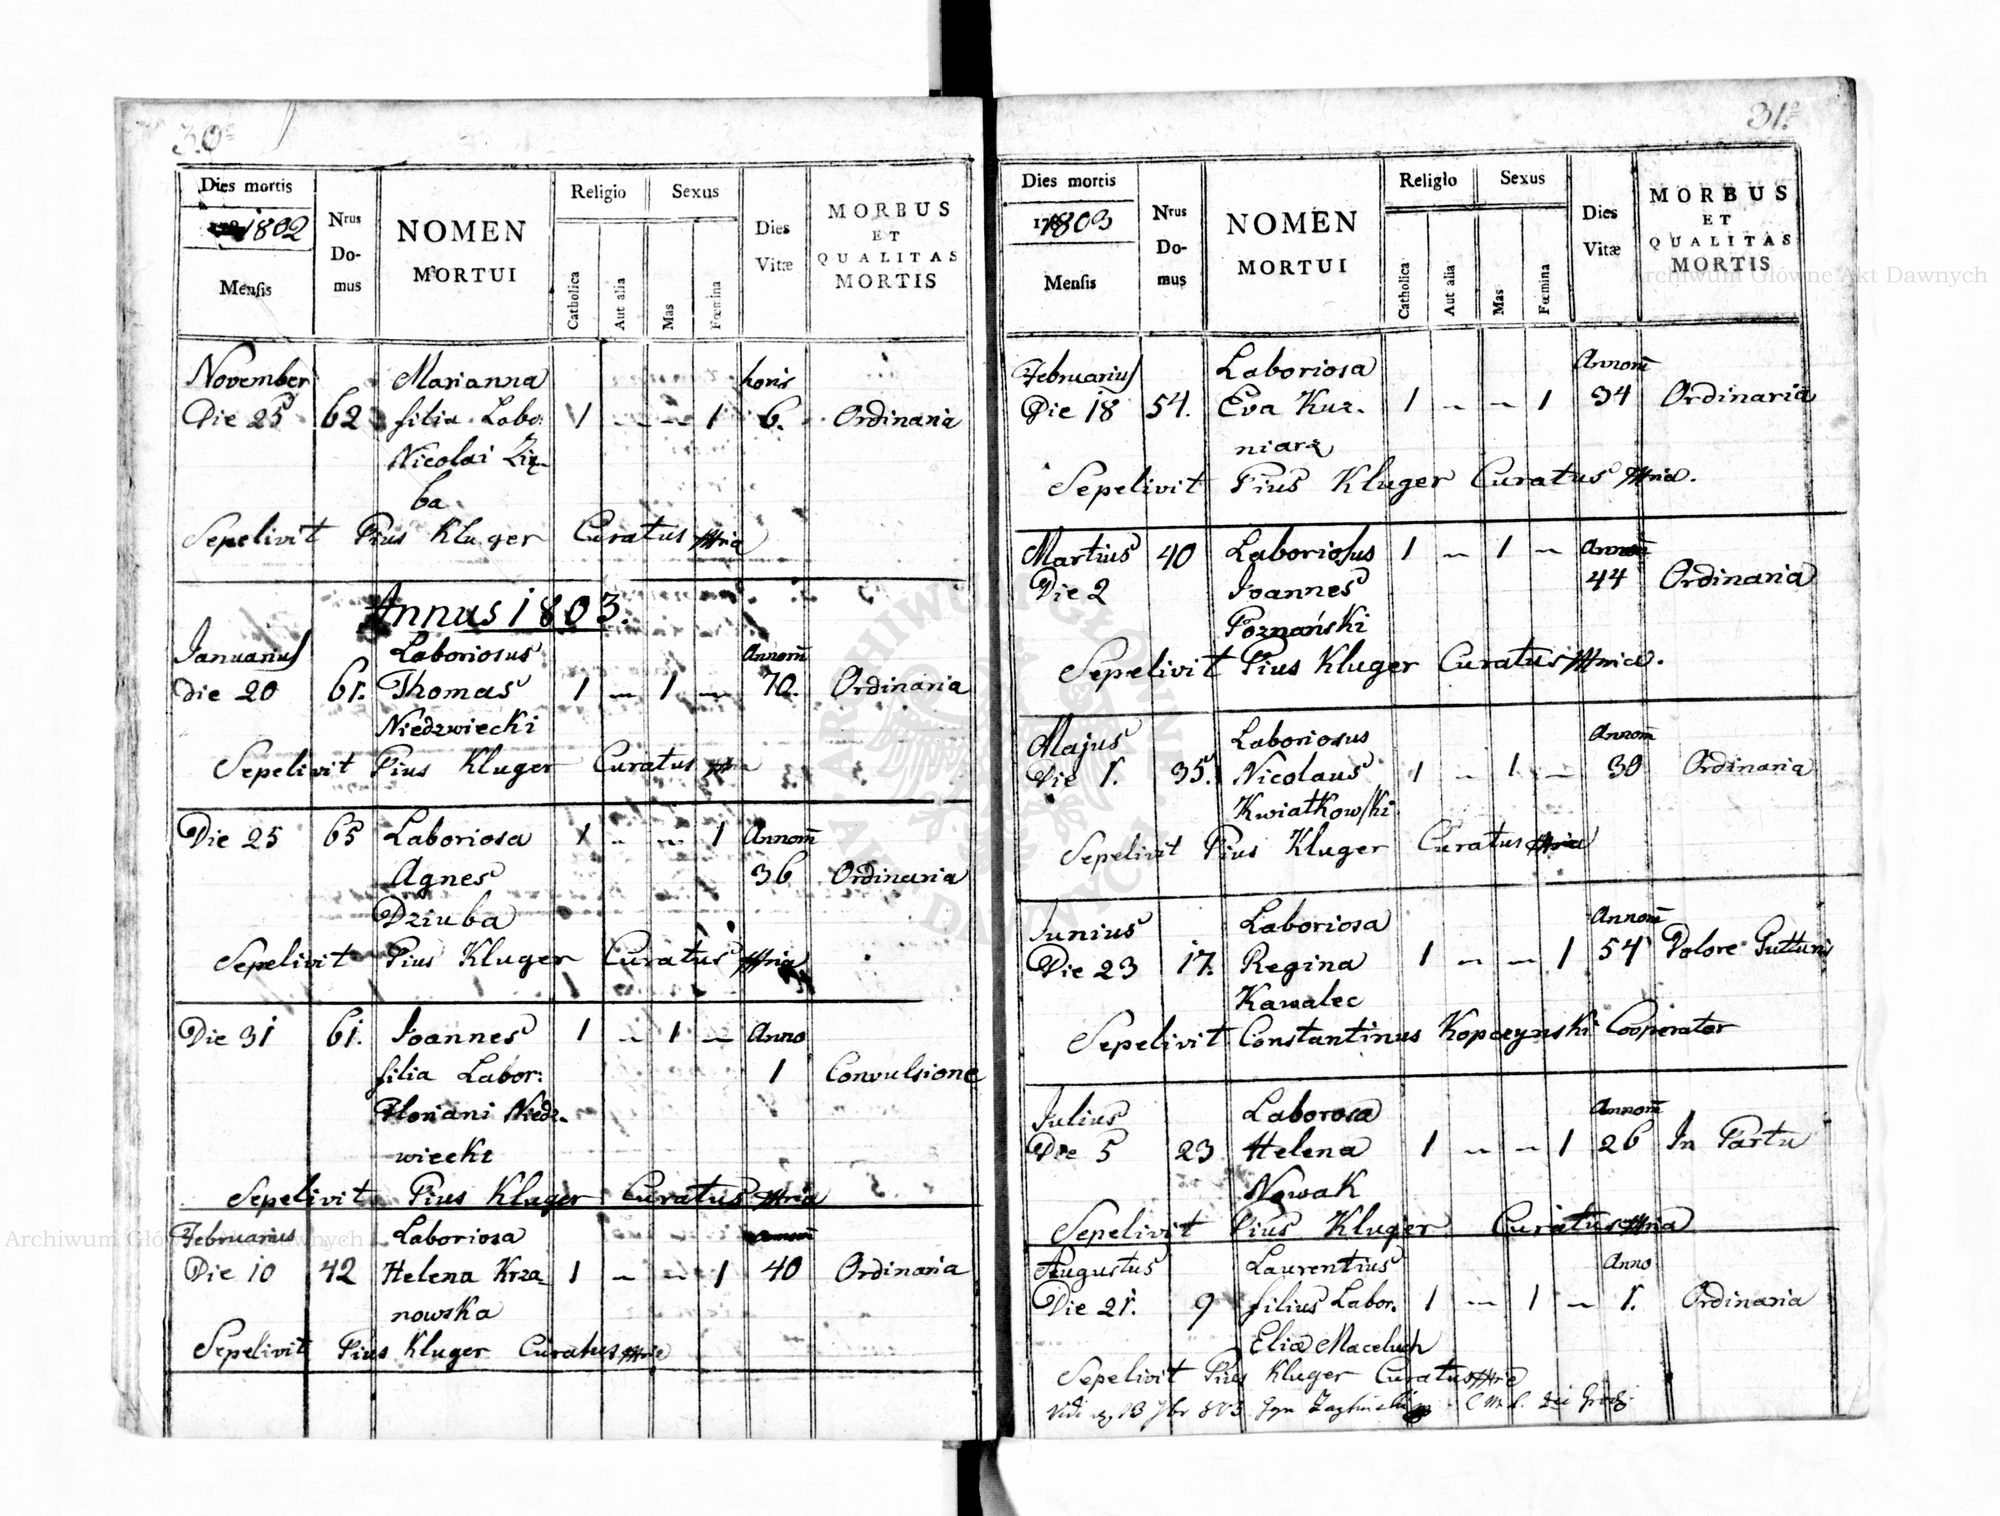 30
Dies mortis
1802
Mensis
Nrus
Do-
mus
NOMEN
MORTUI
Religio
Catholica
Aut alia
Sexus
Mas
Fœmina
Dies
Vitæ
MORBUS
ET
QUALITAS
MORTIS
November Marianna horis
Die 25 62 filia Labo: 1 ~ ~ 1 6. Ordinaria
Nicolai Zię-
ba
Sepelivit Pius Kluger Curatus
Annus 1803.
Januarius Laboriosus Annorũ
Die 20 61. Thomas 1 ~ 1 ~ 70. Ordinaria
Niedzwiecki
Sepelivit Pius Kluger Curatus
Die 25 65 Laboriosa 1 ~ ~ 1 Annorũ
Agnes 36 Ordinaria
Dziuba
Sepelivit Pius Kluger Curatus
Die 31 61. Joannes 1 ~ 1 ~ Anno
filia Labor: 1 Convulsione
Floriani Niedz-
wiecki
Sepelivit Pius Kluger Curatus
Februarius Laboriosa
Die 10 42 Helena Krza- 1 ~ ~ 1 40 Ordinaria
nowska
Sepelivit Pius Kluger Curatus
31
Dies mortis
1803
Mensis
Nrus
Do-
mus
NOMEN
MORTUI
Religio
Catholica
Aut alia
Sexus
Mas
Fœmina
Dies
Vitæ
MORBUS
ET
QUALITAS
MORTIS
Februarius Laboriosa Annorũ
Die 18 54. Eva Kuz- 1 ~ ~ 1 34 Ordinaria
niarz
Sepelivit Pius Kluger Curatus
Martius 40 Laboriosus 1 ~ 1 ~ Annorũ
Die 2 Joannes 44 Ordinaria
Poznański
Sepelivit Pius Kluger Curatus
Majus Laboriosus Annorũ
Die 1. 35. Nicolaus 1 ~ 1 ~ 30 Ordinaria
Kwiatkowski
Sepelivit Pius Kluger Curatus
Junius Laboriosa Annorũ
Die 23 17. Regina 1 ~ ~ 1 54 Dolore Gutturis
Kawalec
Sepelivit Constantinus Kopczynski Cooperator
Julius Laborosa Annorũ
Die 5 23 Helena 1 ~ ~ 1 26 In Partu
Nowak
Sepelivit Pius Kluger Curatus
Augustus Laurentius Anno
Die 21. 9 filius Labor. 1 ~ 1 ~ 1. Ordinaria
Eliæ Maceluch
Sepelivit Pius Kluger Curatus
Archiwum Główne Akt Dawnych